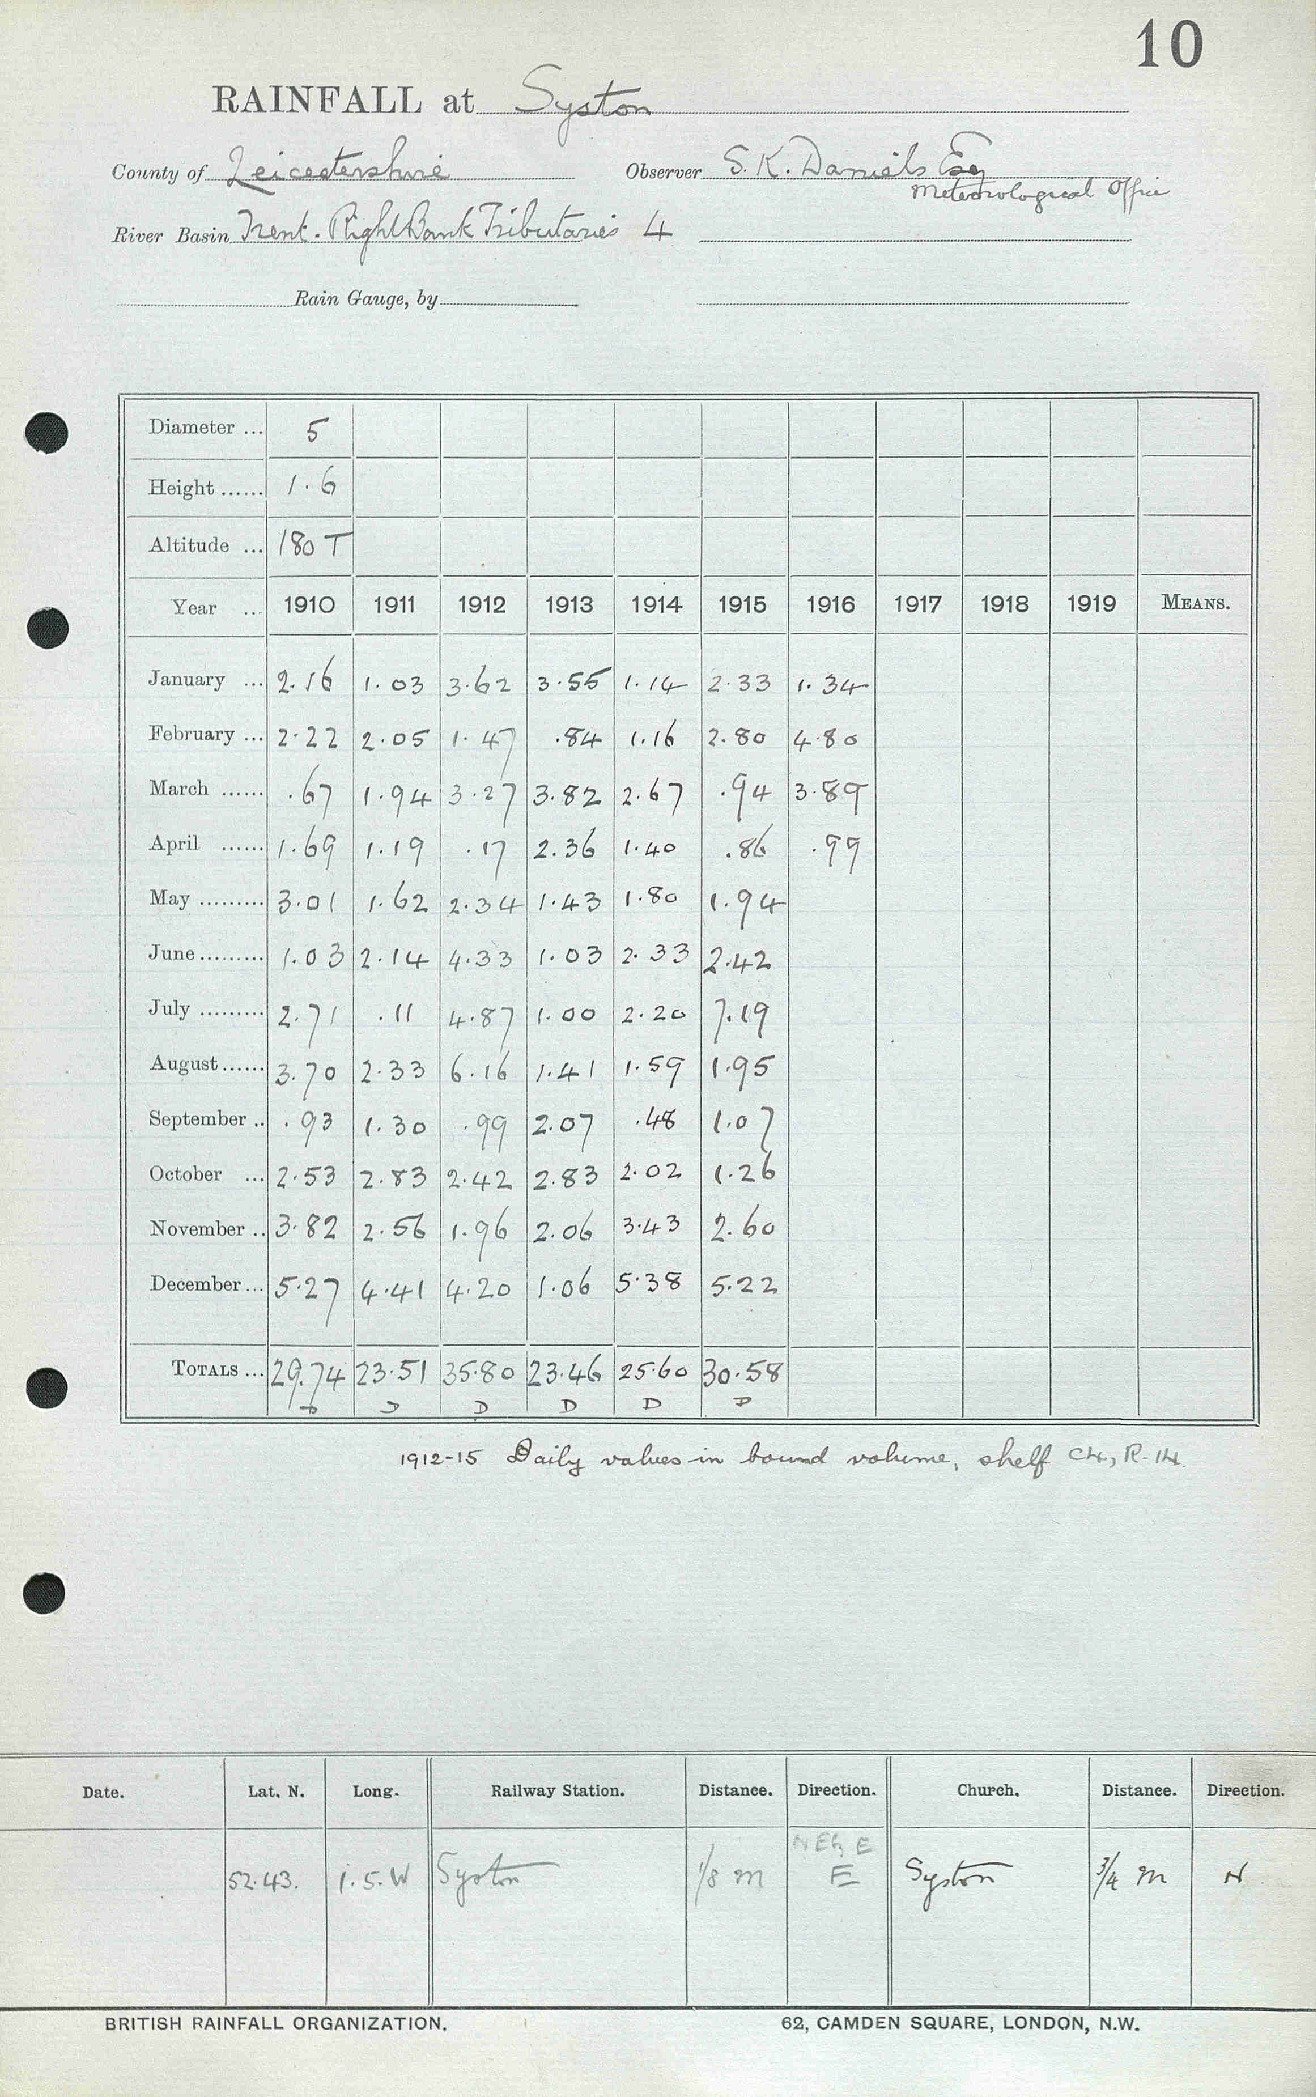 10
RAINFALL at Syston
County of Leicestershire Observer S. K. Daniels Esq
Meteorological Office
River Basin Trent. Right Bank Tributaries 4
Rain Gauge, by
Diameter ... 5
Height ...... 1.6
Altitude ... 180 T
Year ... 1910 1911 1912 1913 1914 1915 1916 1917 1918 1919 MEANS.
January ... 2.16 1.03 3.62 3.55 1.14 2.33 1.34
February ... 2.22 2.05 1.47 .84 1.16 2.80 4.80
March ...... .67 1.94 3.27 3.82 2.67 .94 3.89
April ...... 1.69 1.19 .17 2.36 1.40 .86 .99
May ......... 3.01 1.62 2.34 1.43 1.80 1.94
June ......... 1.03 2.14 4.33 1.03 2.33 2.42
July ......... 2.71 .11 4.87 1.00 2.20 7.19
August ...... 3.70 2.33 6.16 1.41 1.59 1.95
September .. .93 1.30 .99 2.07 .48 1.07
October ... 2.53 2.83 2.42 2.83 2.02 1.26
November .. 3.82 2.56 1.96 2.06 3.43 2.60
December ... 5.27 4.41 4.20 1.06 5.38 5.22
TOTALS ... 29.74 23.51 35.80 23.46 25.60 30.58
D D D D D D
1912-15 Daily values in bound volume, shelf C4, R.14
Date. Lat. N. Long. Railway Station. Distance. Direction. Church. Distance. Direction.
NEbE
52.43. 1.5.W Syston 1/8 m E Syston 3/4 m N
BRITISH RAINFALL ORGANIZATION. 62, CAMDEN SQUARE, LONDON, N.W.